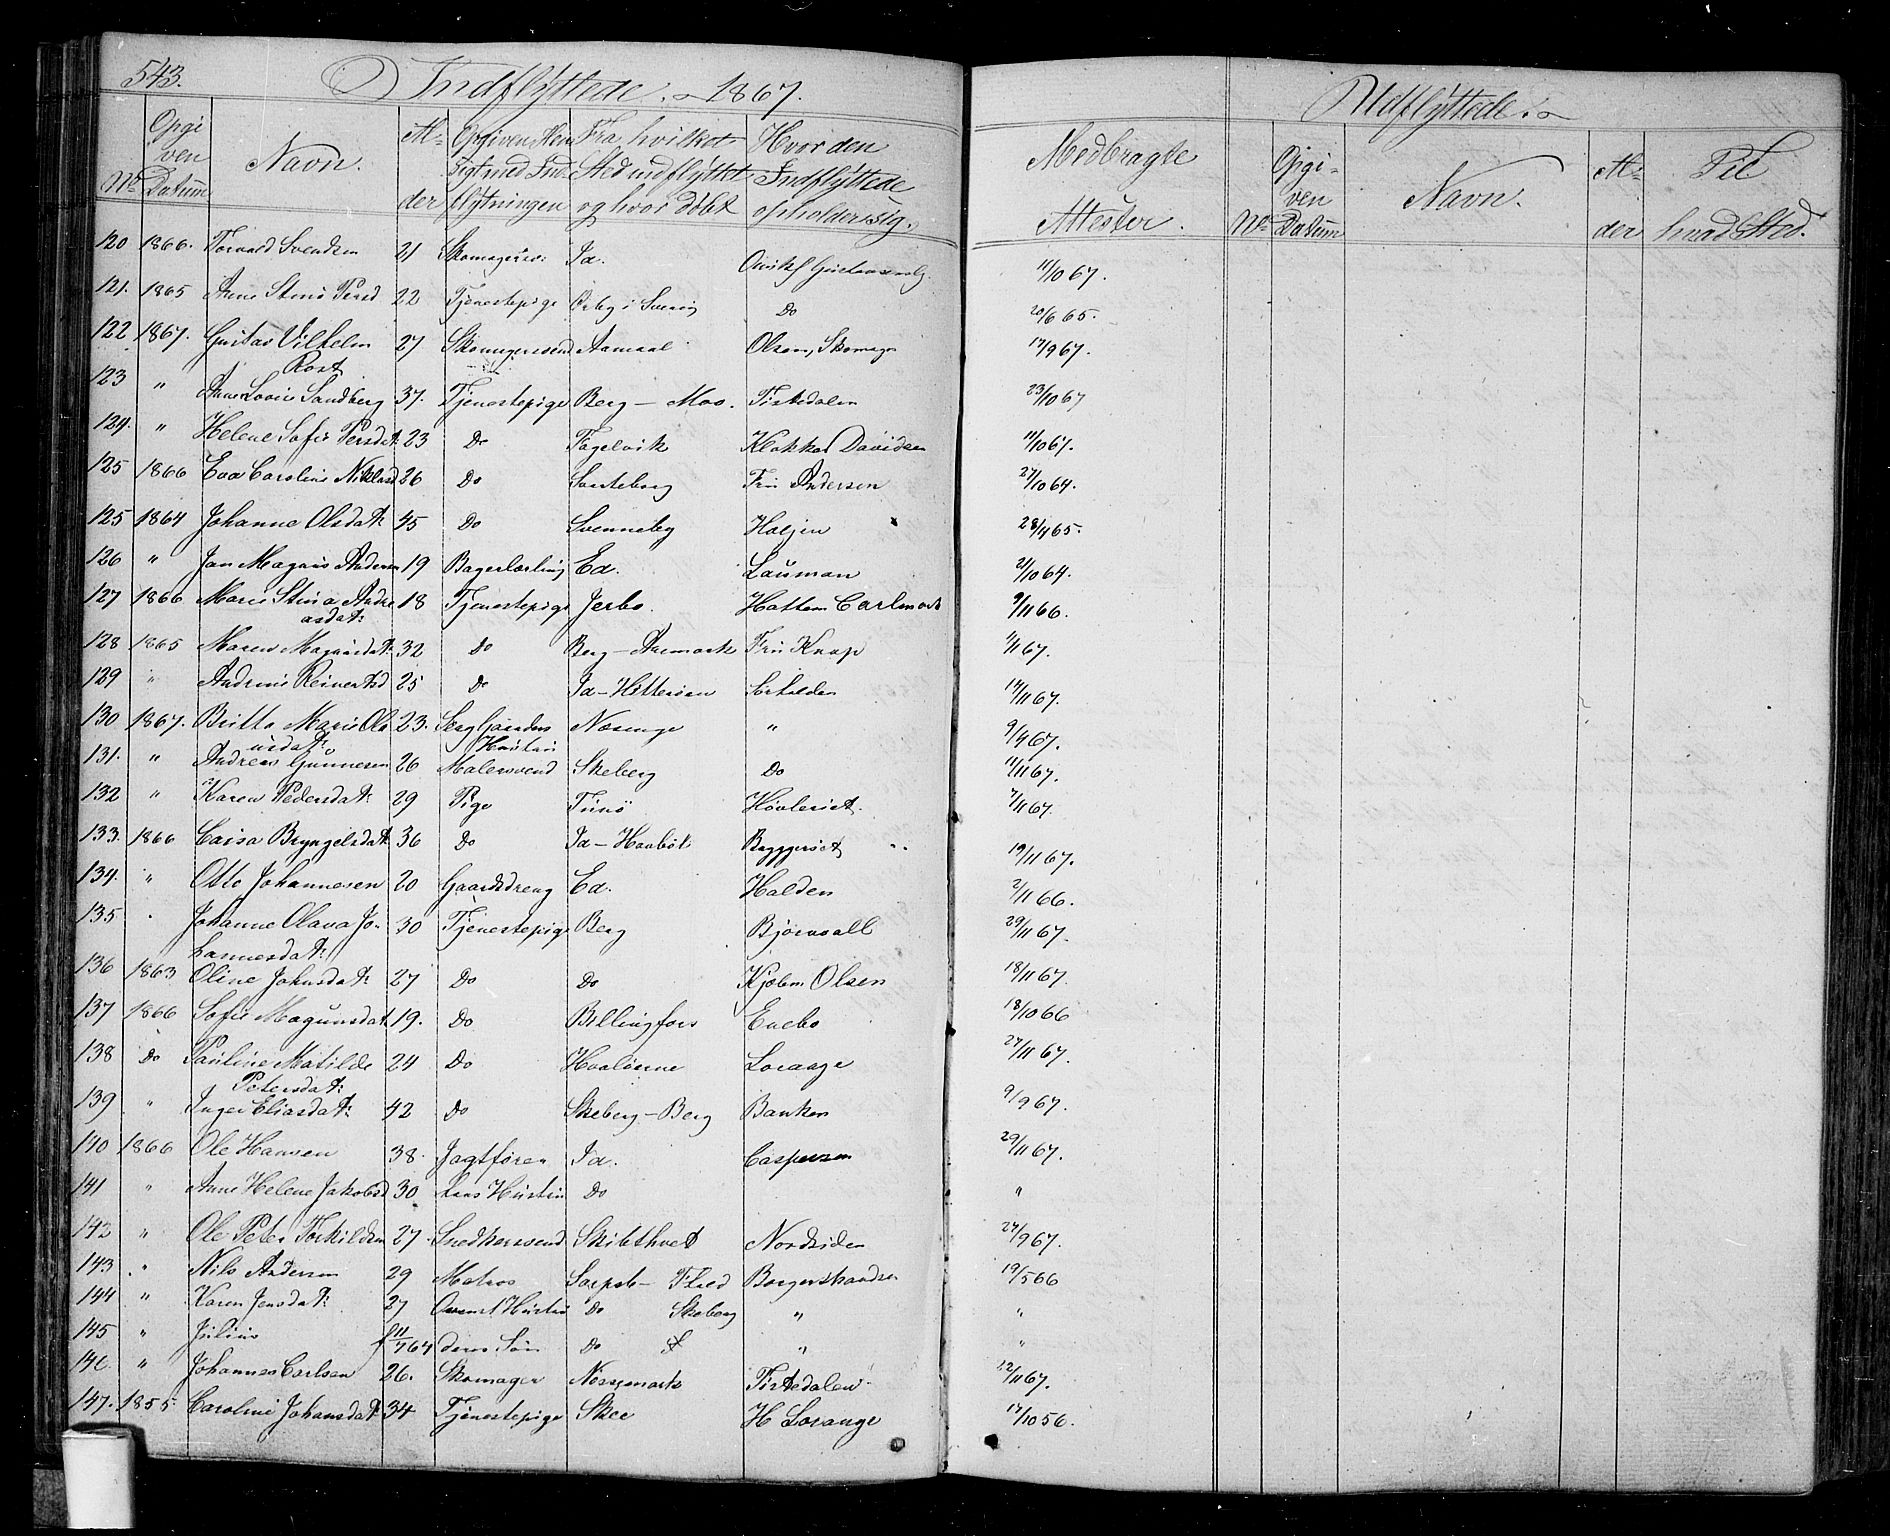 543.
Indflyttede. 1867.
Udflyttede.
No Opgiven Datum Navn. Alder Opgiven Hensigt med Indflytningen Fra hvilket Sted indflyttet og hvor døbt Hvor den Indflyttede opholder sig. Medbragte Attester. No Opgiven Datum Navn. Alder Til hvad Sted.
120 1866. Torvald Svendsen 21 Id. 11/10 67.
121. 1865 Anne Stina Persd 22 Tjenestepige i Sverig Do 20/6 65.
122 1867. Gustav Vilhelm 27 Skomagersvend Aamaal Olsen, Skomager 17/9 67.
Rost
123 " Anne Lovise Sandberg 37. Tjenestepige Berg – Moo. Tistedalen 23/10 67
124. " Helene Sofie Persdat: 23 Do Fogelvik Klokker Davidsen 11/10 67.
125 1866 Eva Caroline Niklasd 26 Do Fru Andersen 27/10 64.
125 1864 Johanne Olsdat: 45 Do Svenneby 28/4 65.
126 " Jan Magnus Andersen 19 Bagerlærling Ed. Lauman 2/10 64.
127 1866 Marie Stina Andre 18 Tjenestepige Jerbo. 9/11 66.
asdat:
128 1865 Maren Magnusdat 32 Do Berg – Aremark Fru Knap 1/11 67.
129 " Andrine Reinertsd 25 Do Id – Hitterøen 14/11 67.
130 1867. Britta Marie Ola 23. Næsinge " 9/4 67.
usdat: Hustru
131. " Andreas Gunnesen 26 Malersvend Skeberg Do 11/11 67.
132 " Karen Pedersdat: 29 Pige Tunø Høvleriet. 7/11 67.
133. 1866 Caisa Bryngelsdat 36 Do Id – Haabøl Bryggeriet " 19/11 67.
134. " Otto Johannesen 20 Gaardsdreng Ed. Halden 2/11 66.
135 . Johanne Olava Jo- 30 Tjenestepige Berg Bjørnvall 29/11 67.
hannesdat:
136 1863 Oline Johnsdat: 27 Do Do Olsen 18/11 67.
137 1866 Sofie Magnusdat 19. Do Billingfors Enebo 18/10 66
138 Do Pauline Matilde 24 Do Hvaløerne Lorange 27/11 67.
Petersdat:
139 " Inger Eliasdat: 42 Do Skeberg – Berg Banken 9/9 67.
140 1866 Ole Hansen 38. Jagtfører Id. Caspersen 29/11 67.
141 " Anne Helene Jakobsd 30 hans Hustru Do "
142 " Ole Peter Torkildsen 27. Snedkersvend Skibthvet Nordsiden 27/9 67.
143 . " Nils Andersen 29 Matros Sarpsb – 19/5 66
144 " Karen Jensdat: 27 Hustru Do Skeberg " "
145 " Julius f 11/7 64 deres Søn Do " "
146. " Johannes Carlsen 26. Skomager Nøssemark Tistedalen 12/11 67.
147. 1855. Caroline Johansdat 34 Tjenestepige Skee H Lorange 17/10 56.